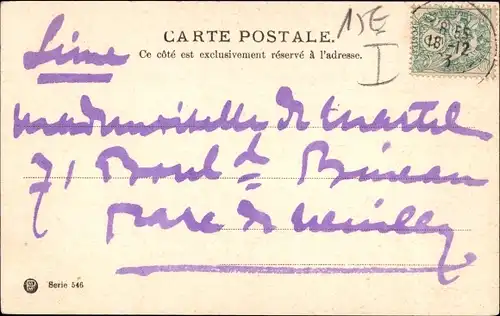 CARTE POSTALE.
Ce côté est exclusivement réservé à l'adresse.
15E
I
Mademoiselle de Martel
71 Boul d Bineau
Parc de Neuilly
Serie 546